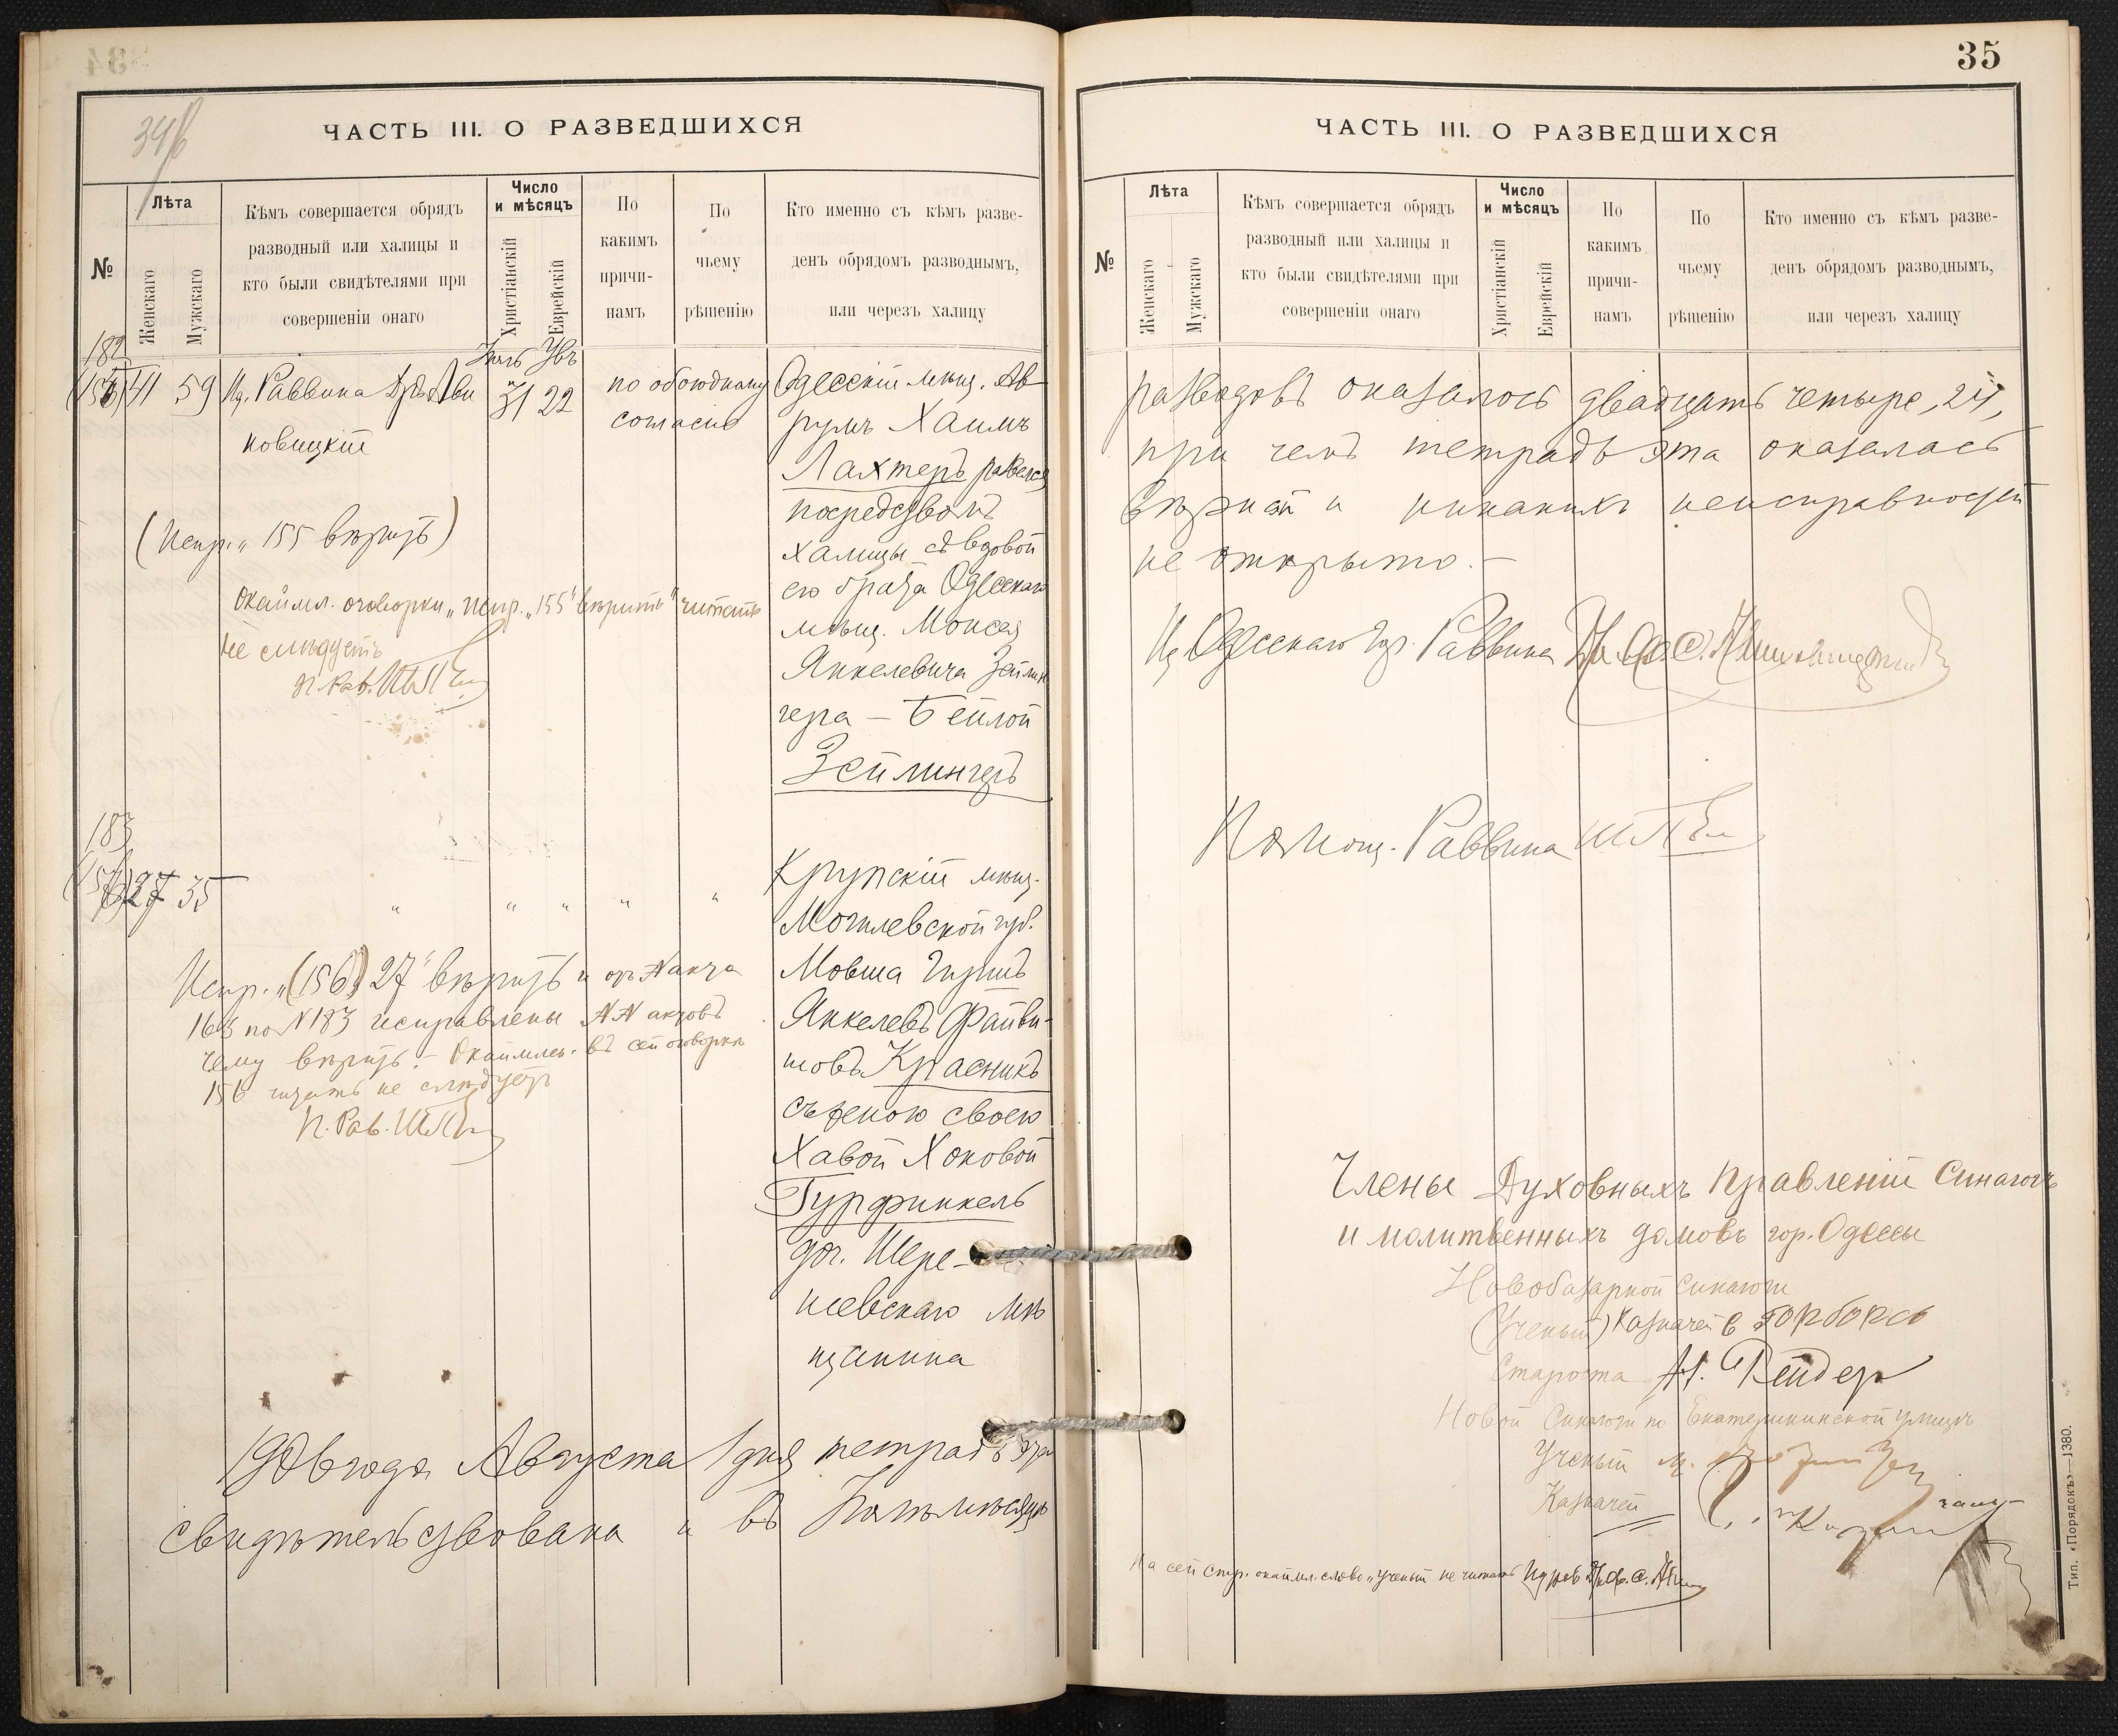 34
34 в
ЧАСТЬ III. О РАЗВЕДШИХСЯ
№
Лѣта
Женскаго
Мужскаго
Кѣмъ совершается обрядъ
разводный или халицы и
кто были свидѣтелями при
совершеніи онаго
Число
и мѣсяцъ
Христіанскій
Еврейскій
По
какимъ
причи-
намъ
По
чьему
рѣшенію
Кто именно съ кѣмъ разве-
денъ обрядомъ разводнымъ,
или черезъ халицу
182
(155) 41 59 Ид. Раввина
31 22
по обоюдному
согласію
новицкій
Одесскій мѣщ. Ав-
румъ Хаимъ
Лахтеръ развелся
посредствомъ
халицы съ вдовой
его брата Одесскаго
мѣщ. Моисея
Янкелевича Зейлин
гера — Бейлой
Зейлингеръ
(Испр. „155 вѣрить)
Окаймл. оговорки „испр. „155" вѣрить" читать
не слѣдуетъ
П. Рав.
183
(156) 27 35 " " " " "
Крупскій мѣщ.
Могилевской губ.
Мовша Гиршъ
Янкелевъ Файви-
шовъ Красникъ
съ женою своею
Хавой Хоновой
Гурфинкель
доч. Шере-
шевскаго мѣ
щанина
Испр. „(156) 27" вѣрить и отъ № акта
163 по № 183 исправлены №№ актовъ
чему вѣрить. – Окаймлен. въ сей оговоркѣ
156 читать не слѣдуетъ
П. Рав.
1906 года Августа 1 дня тетрадь эта
свидѣтельствована и въ Іюлѣ мѣсяцѣ
35
ЧАСТЬ III. О РАЗВЕДШИХСЯ
№
Лѣта
Женскаго
Мужскаго
Кѣмъ совершается обрядъ
разводный или халицы и
кто были свидѣтелями при
совершеніи онаго
Число
и мѣсяцъ
Христіанскій
Еврейскій
По
какимъ
причи-
намъ
По
чьему
рѣшенію
Кто именно съ кѣмъ разве-
денъ обрядомъ разводнымъ,
или черезъ халицу
разводовъ оказалось двадцать четыре, 24,
при чемъ тетрадь эта оказалась
вѣрной и никакихъ неисправностей
не открыто. –
Ид Одесскаго Гор. Раввина
Помощ. Раввина
Члены Духовныхъ Правленій Синагогъ
и молитвенныхъ домовъ гор. Одессы
Новобазарной Синагоги
(Ученый) Казначей
Староста А. Рейдер
Новой Синагоги по Екатерининской улицѣ
Ученый
Казначей
На сей стр. окаймл. слово „ученый не читать
Тип. «Порядокъ»—1380.